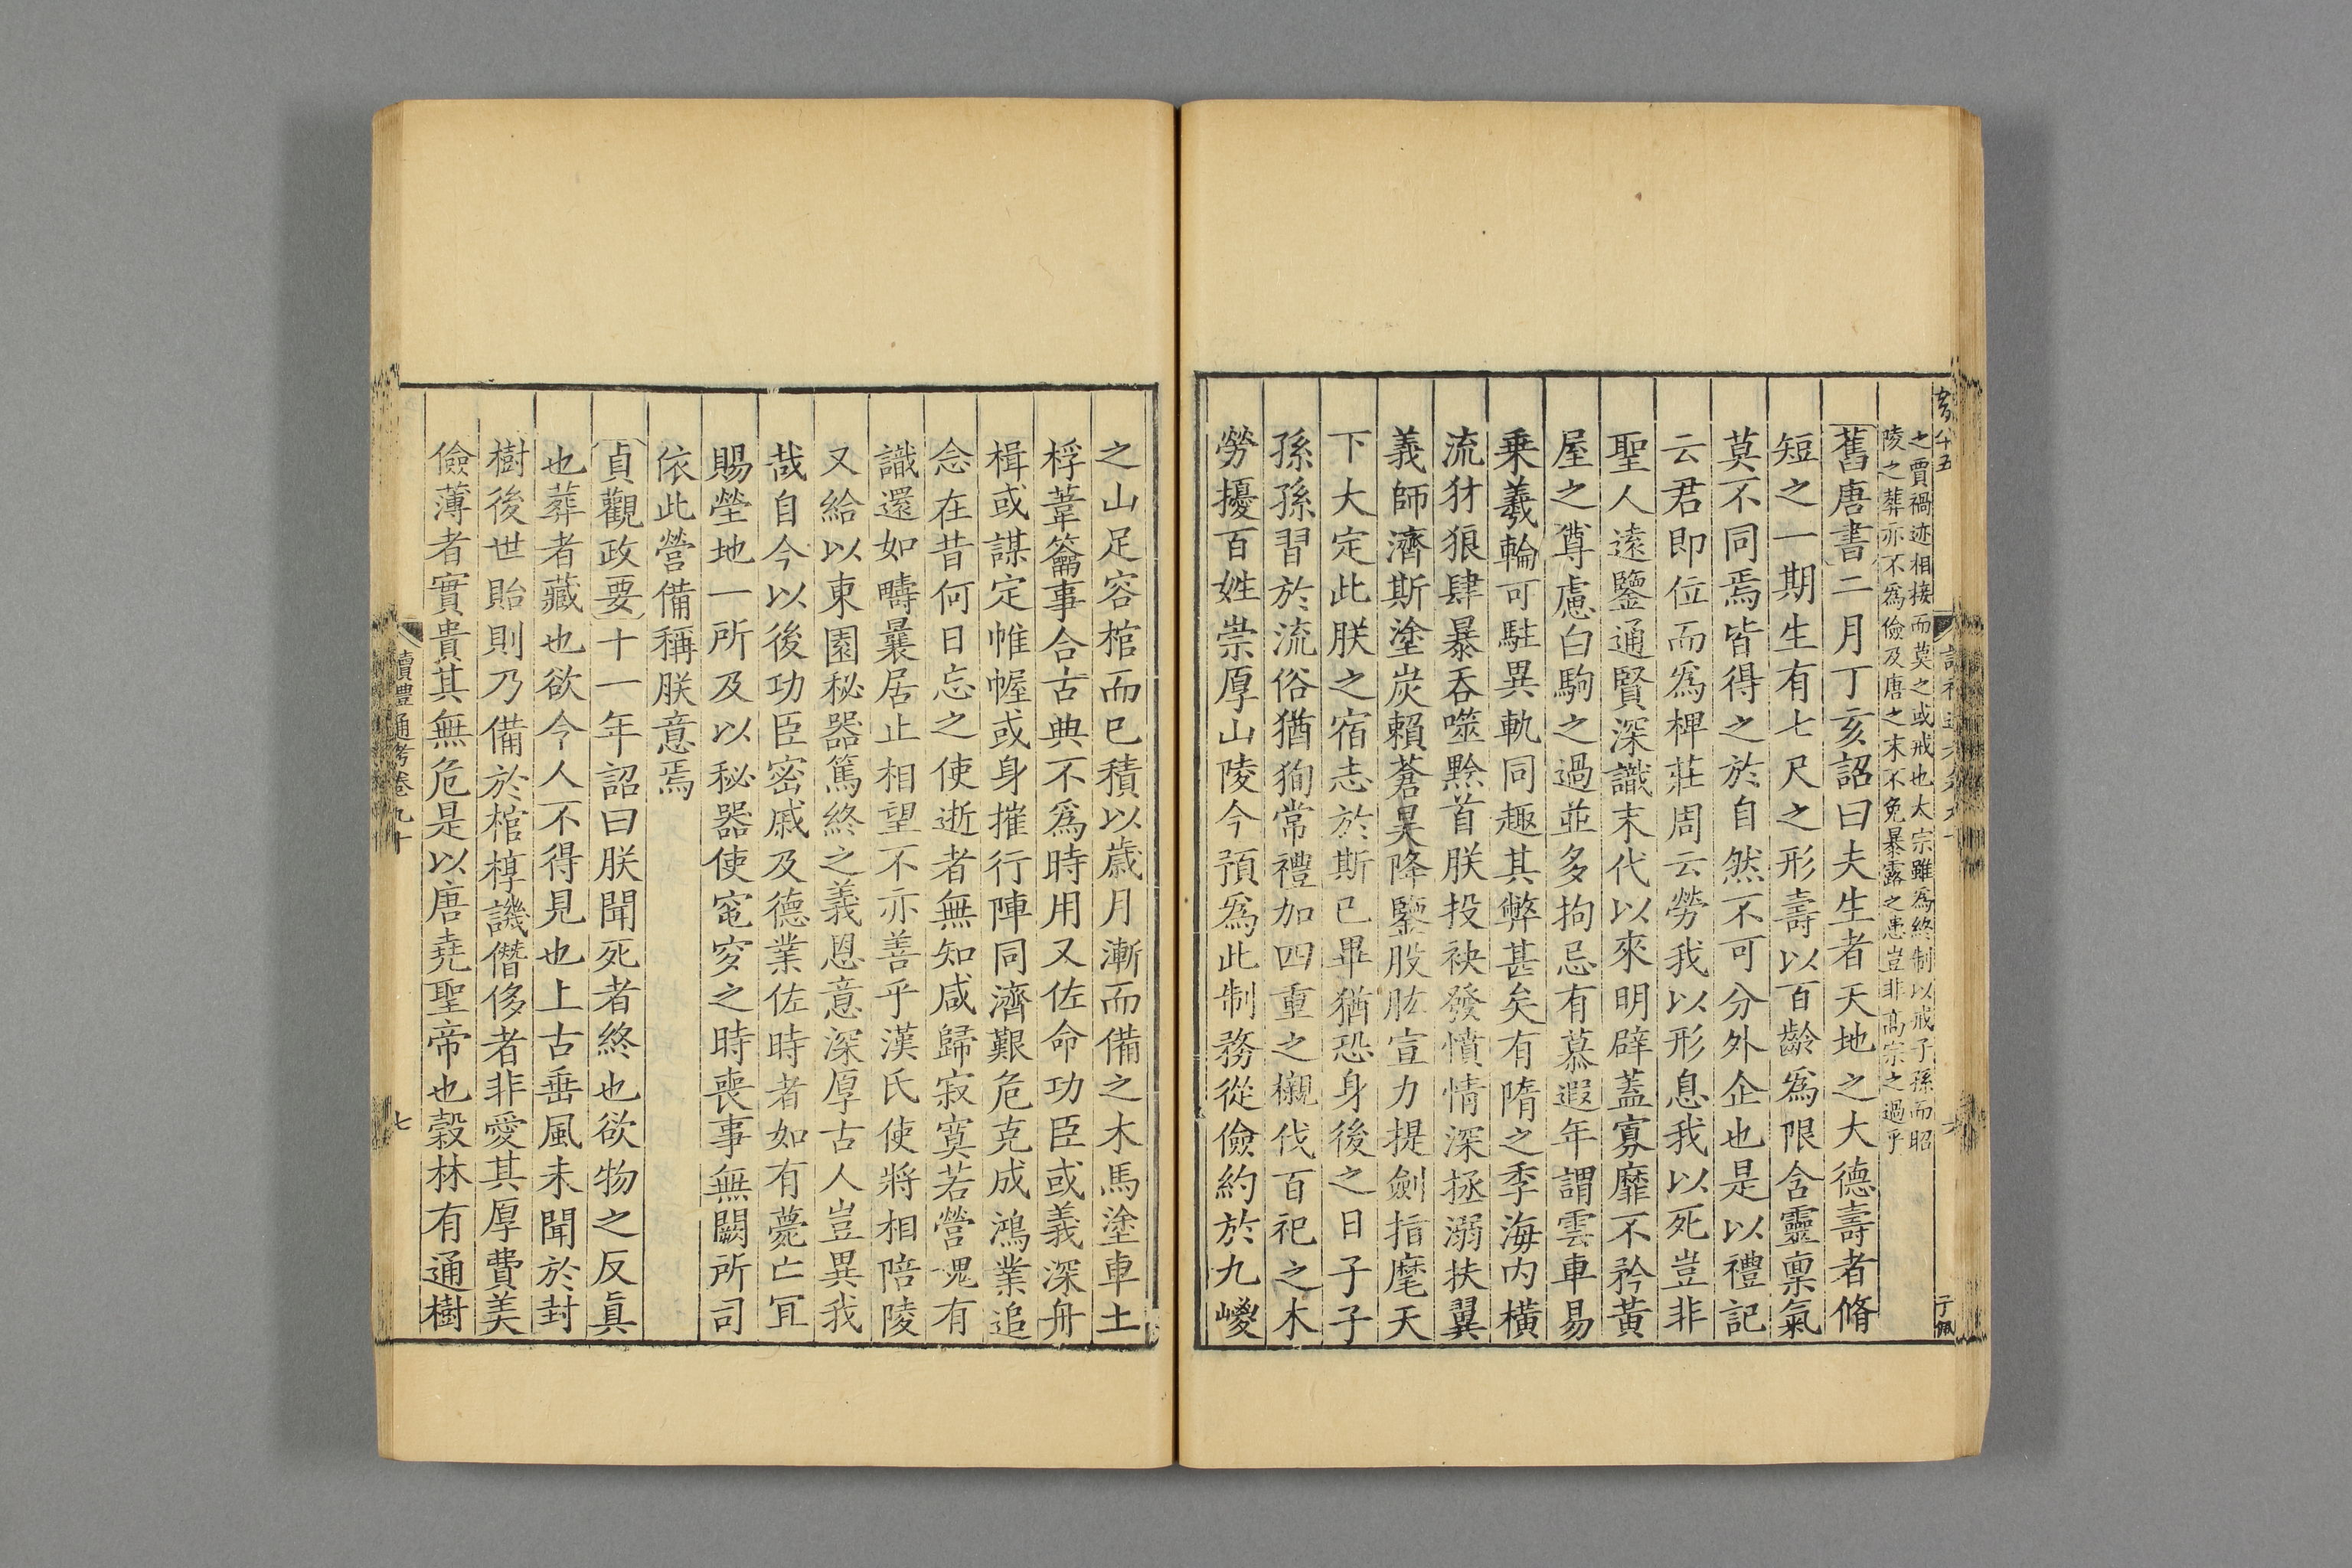 之賈禍迹相接而莫之或戒也太宗雖爲終制以戒子孫而昭
陵之葬亦不爲儉及唐之末不免暴露之患豈非高宗之過乎
舊唐書二月丁亥詔曰夫生者天地之大德壽者脩
短之一期生有七尺之形壽以百齡爲限含靈稟氣
莫不同焉皆得之於自然不可分外企也是以禮記
云君即位而爲椑莊周云勞我以形息我以死豈非
聖人遠鑒通賢深識末代以來明辟蓋寡靡不矜黃
屋之尊慮白駒之過並多拘忌有慕遐年謂雲車易
乗羲輪可駐異軌同趣其弊甚矣有隋之季海內橫
流犲狼肆暴吞噬黔首朕投袂發憤情深拯溺扶翼
義師濟斯塗炭賴蒼昊降鑒股肱宣力提劍指麾天
下大定此朕之宿志於斯已畢猶恐身後之日子子
孫孫習於流俗猶狥常禮加四重之櫬伐百祀之木
勞擾百姓崇厚山陵今預爲此制務從儉約於九嵕
之山足容棺而已積以歳月漸而備之木馬塗車土
桴葦籥事合古典不爲時用又佐命功臣或義深舟
楫或謀定帷幄或身摧行陣同濟艱危克成鴻業追
念在昔何日忘之使逝者無知咸歸寂寞若營魂有
識還如疇曩居止相望不亦善乎漢氏使將相陪陵
又給以東園秘器篤終之義恩意深厚古人豈異我
哉自今以後功臣密戚及德業佐時者如有薨亡宜
賜塋地一所及以秘器使窀穸之時喪事無闕所司
依此營備稱朕意焉
貞觀政要十一年詔曰朕聞死者終也欲物之反眞
也葬者藏也欲令人不得見也上古垂風未聞於封
樹後世貽則乃備於棺椁譏僭侈者非愛其厚費美
儉薄者實貴其無危是以唐堯聖帝也穀林有通樹
讀禮通考卷九十
七